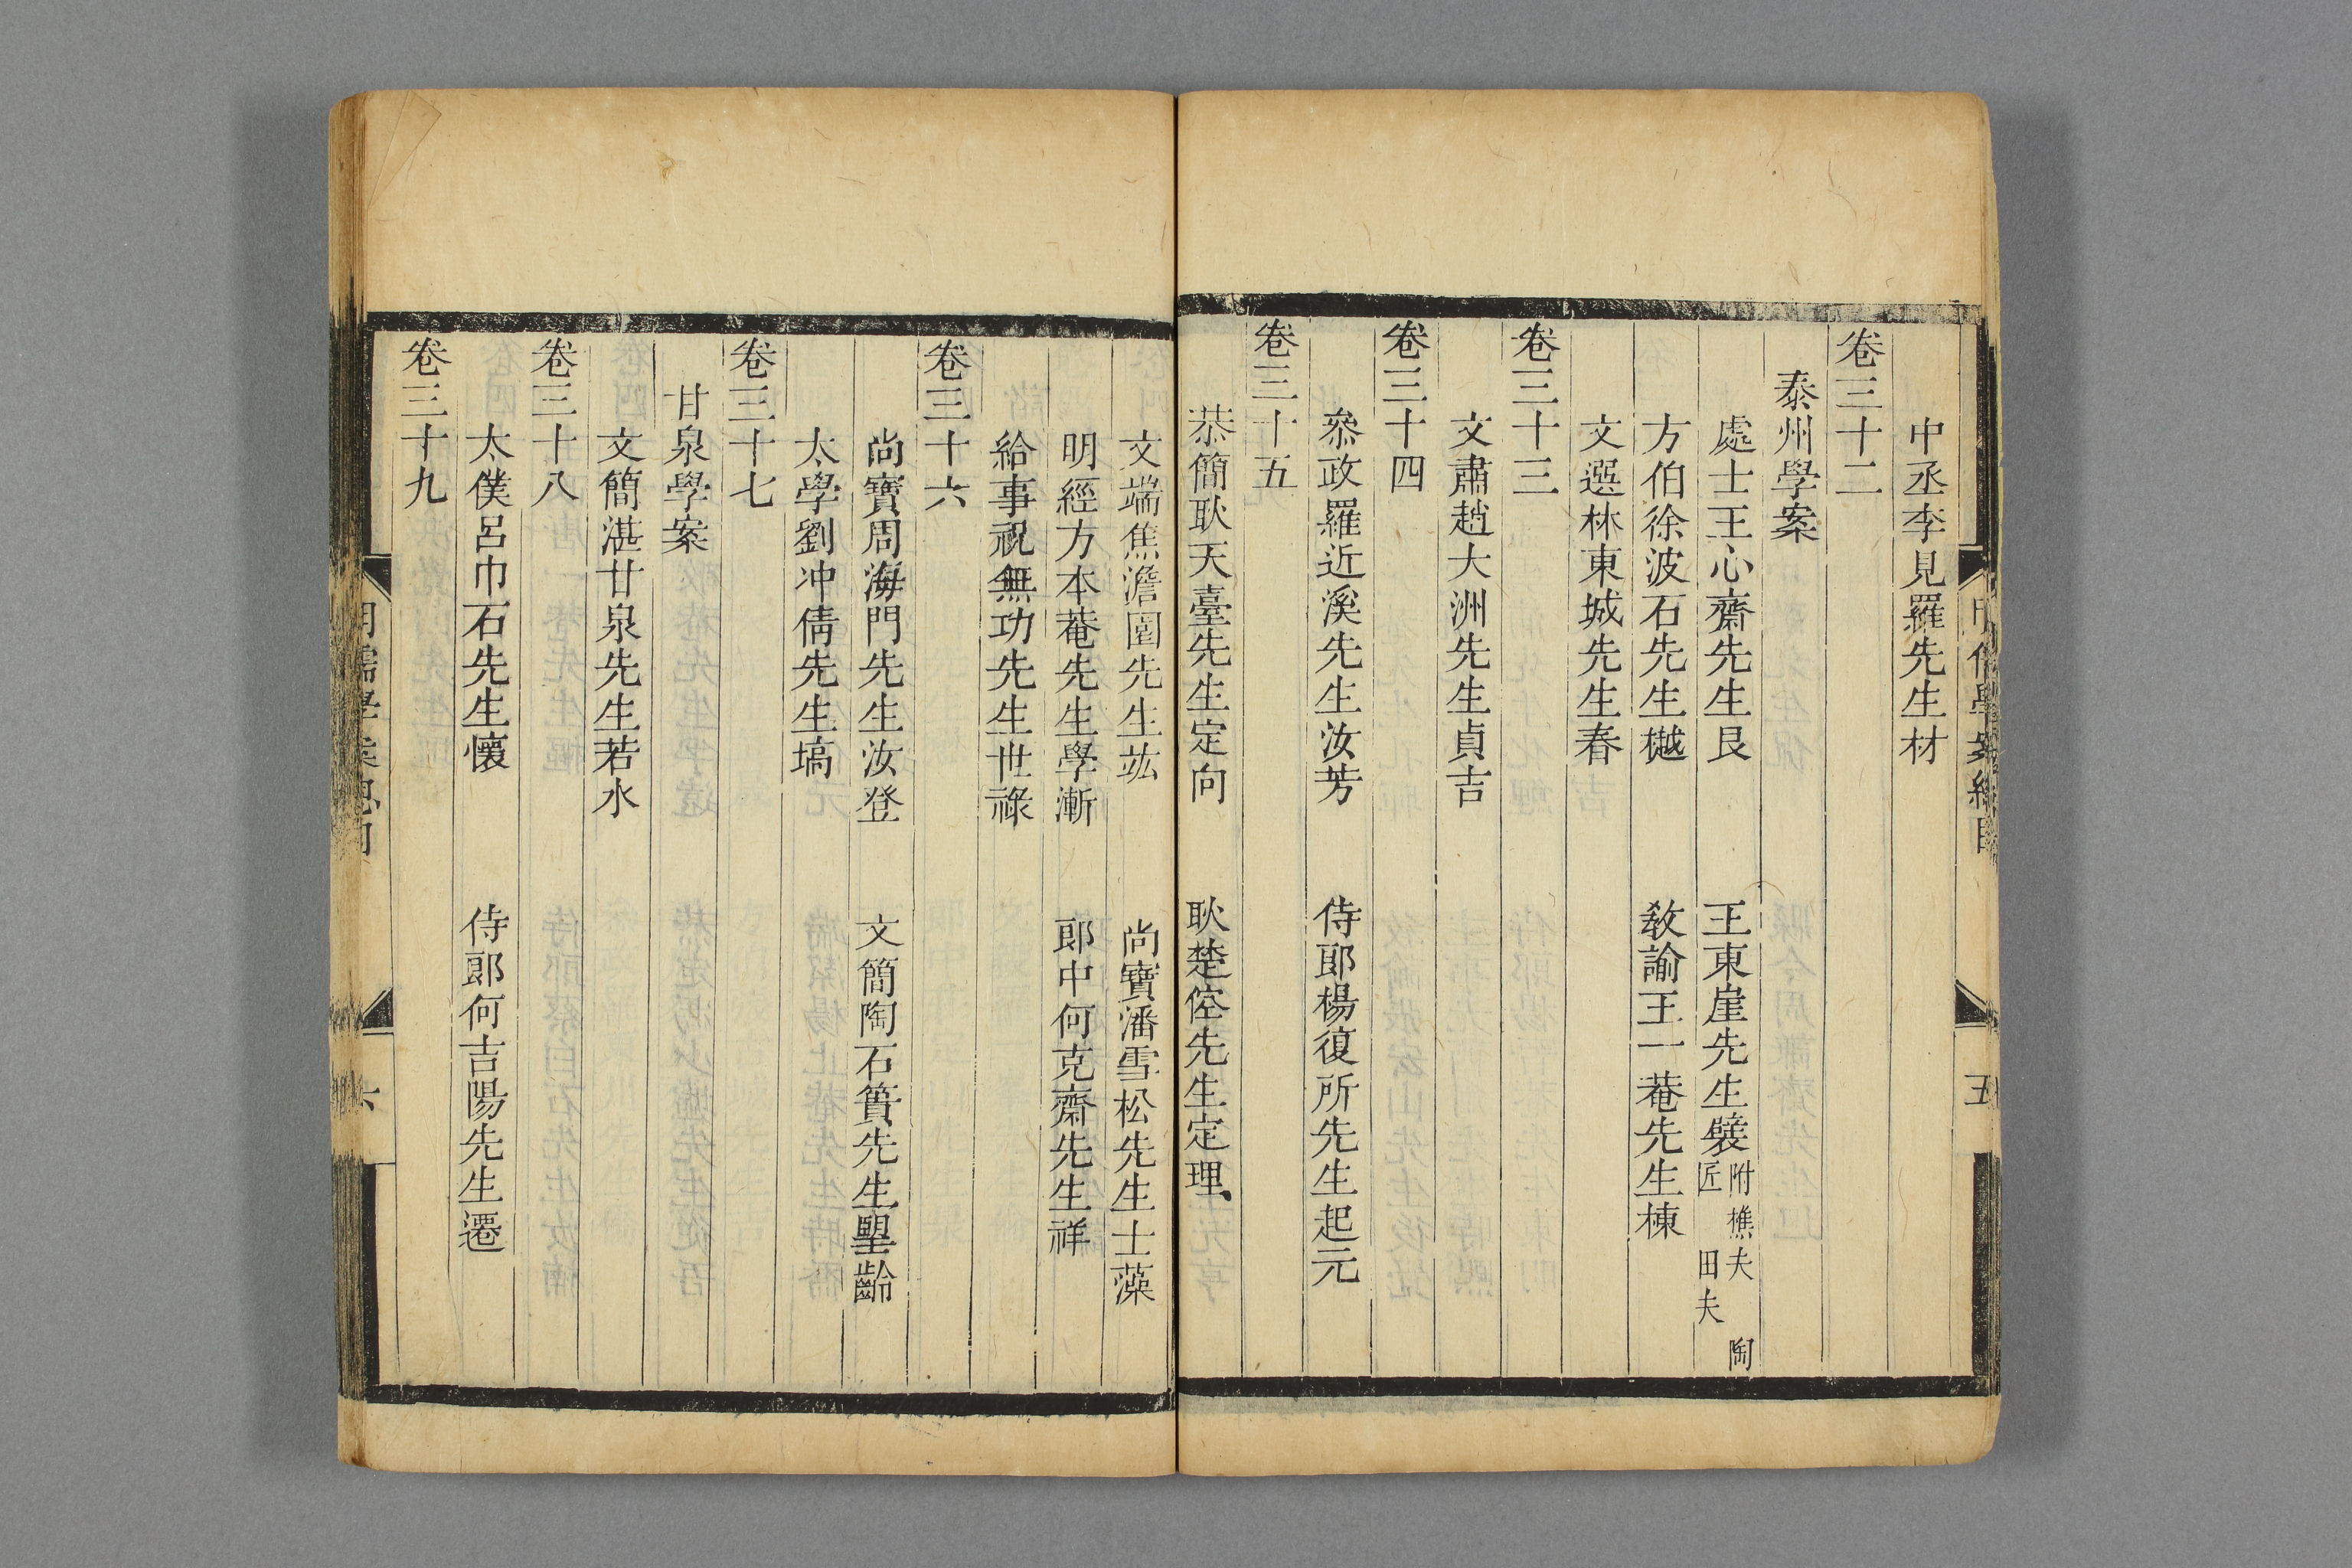 中丞李見羅先生材
卷三十二
泰州學案
處士王心齋先生艮 王東崖先生襞 附樵夫 陶
匠 田夫
方伯徐波石先生樾 敎諭王一菴先生棟
文選林東城先生春
卷三十三
文肅趙大洲先生貞吉
卷三十四
叅政羅近溪先生汝芳 侍郎楊復所先生起元
卷三十五
恭簡耿天臺先生定向 耿楚倥先生定理
文端焦澹園先生竑 尚寶潘雪松先生士藻
明經方本菴先生學漸 郎中何克齋先生祥
給事祝無功先生世祿
卷三十六
尚寶周海門先生汝登 文簡陶石簣先生朢齡
太學劉冲倩先生塙
卷三十七
甘泉學案
文簡湛甘泉先生若水
卷三十八
太僕呂巾石先生懷 侍郎何吉陽先生遷
卷三十九